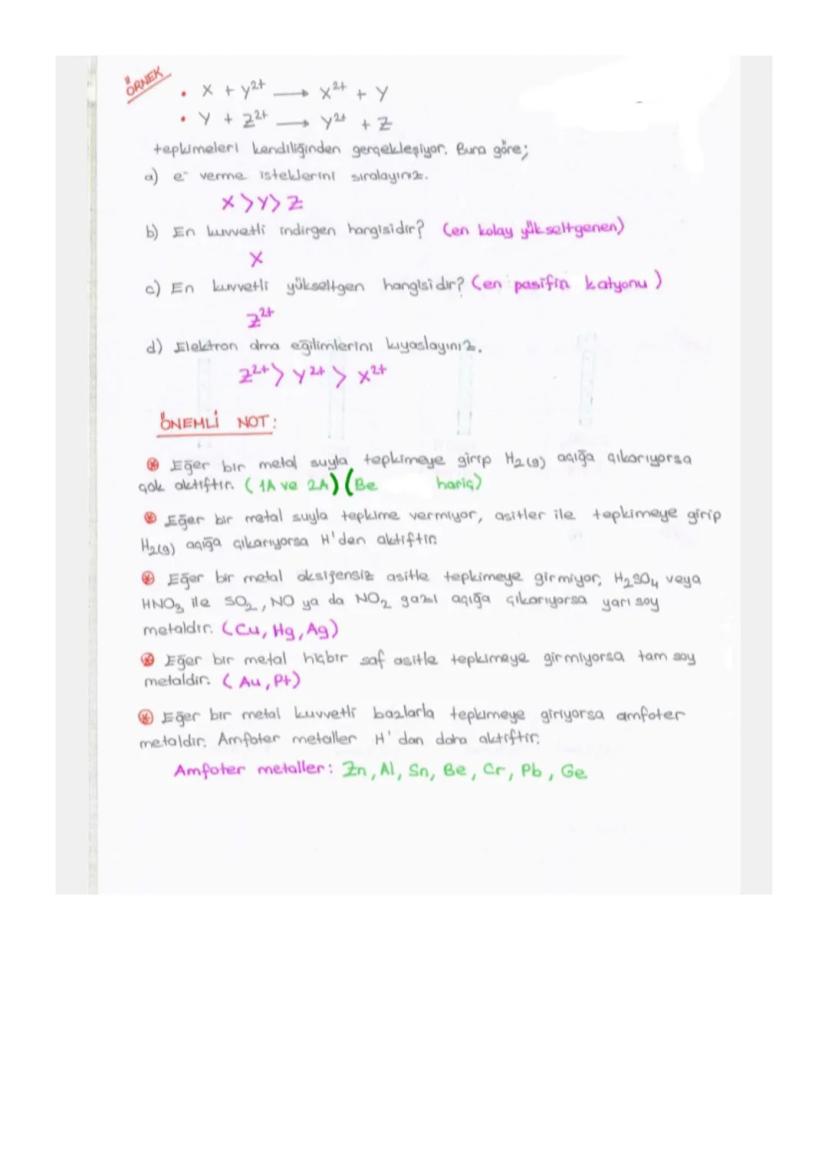 ÖRNEK
• X + Y²⁺ ⟶ X²⁺ + Y
• Y + Z²⁺ ⟶ Y²⁺ + Z
tepkimeleri kendiliğinden gerçekleşiyor. Buna göre;
a) e⁻ verme isteklerini sıralayınız.
X > Y > Z
b) En kuvvetli indirgen hangisidir? (en kolay yükseltgenen)
X
c) En kuvvetli yükseltgen hangisidir? (en pasifin katyonu)
Z²⁺
d) Elektron alma eğilimlerini kıyaslayınız.
Z²⁺ > Y²⁺ > X²⁺
ÖNEMLİ NOT:
* Eğer bir metal suyla tepkimeye girip H₂(g) açığa çıkarıyorsa
çok aktiftir. (1A ve 2A) (Be hariç)
* Eğer bir metal suyla tepkime vermiyor, asitler ile tepkimeye girip
H₂(g) açığa çıkarıyorsa H'den aktiftir.
* Eğer bir metal oksijensiz asitle tepkimeye girmiyor, H₂SO₄ veya
HNO₃ ile SO₂, NO ya da NO₂ gazı açığa çıkarıyorsa yarı soy
metaldir. (Cu, Hg, Ag)
* Eğer bir metal hiçbir saf asitle tepkimeye girmiyorsa tam soy
metaldir. (Au, Pt)
* Eğer bir metal kuvvetli bazlarla tepkimeye giriyorsa amfoter
metaldir. Amfoter metaller H' dan daha aktiftir.
Amfoter metaller: Zn, Al, Sn, Be, Cr, Pb, Ge